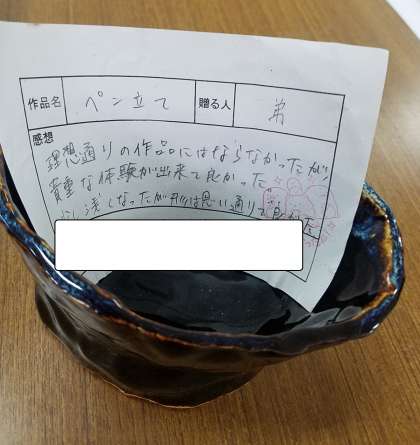 作品名 ペン立て 贈る人 弟
感想
理想通りの作品にはならなかったが、
貴重な体験が出来て良かった。
少し浅くなったが形は思い通りで良かった